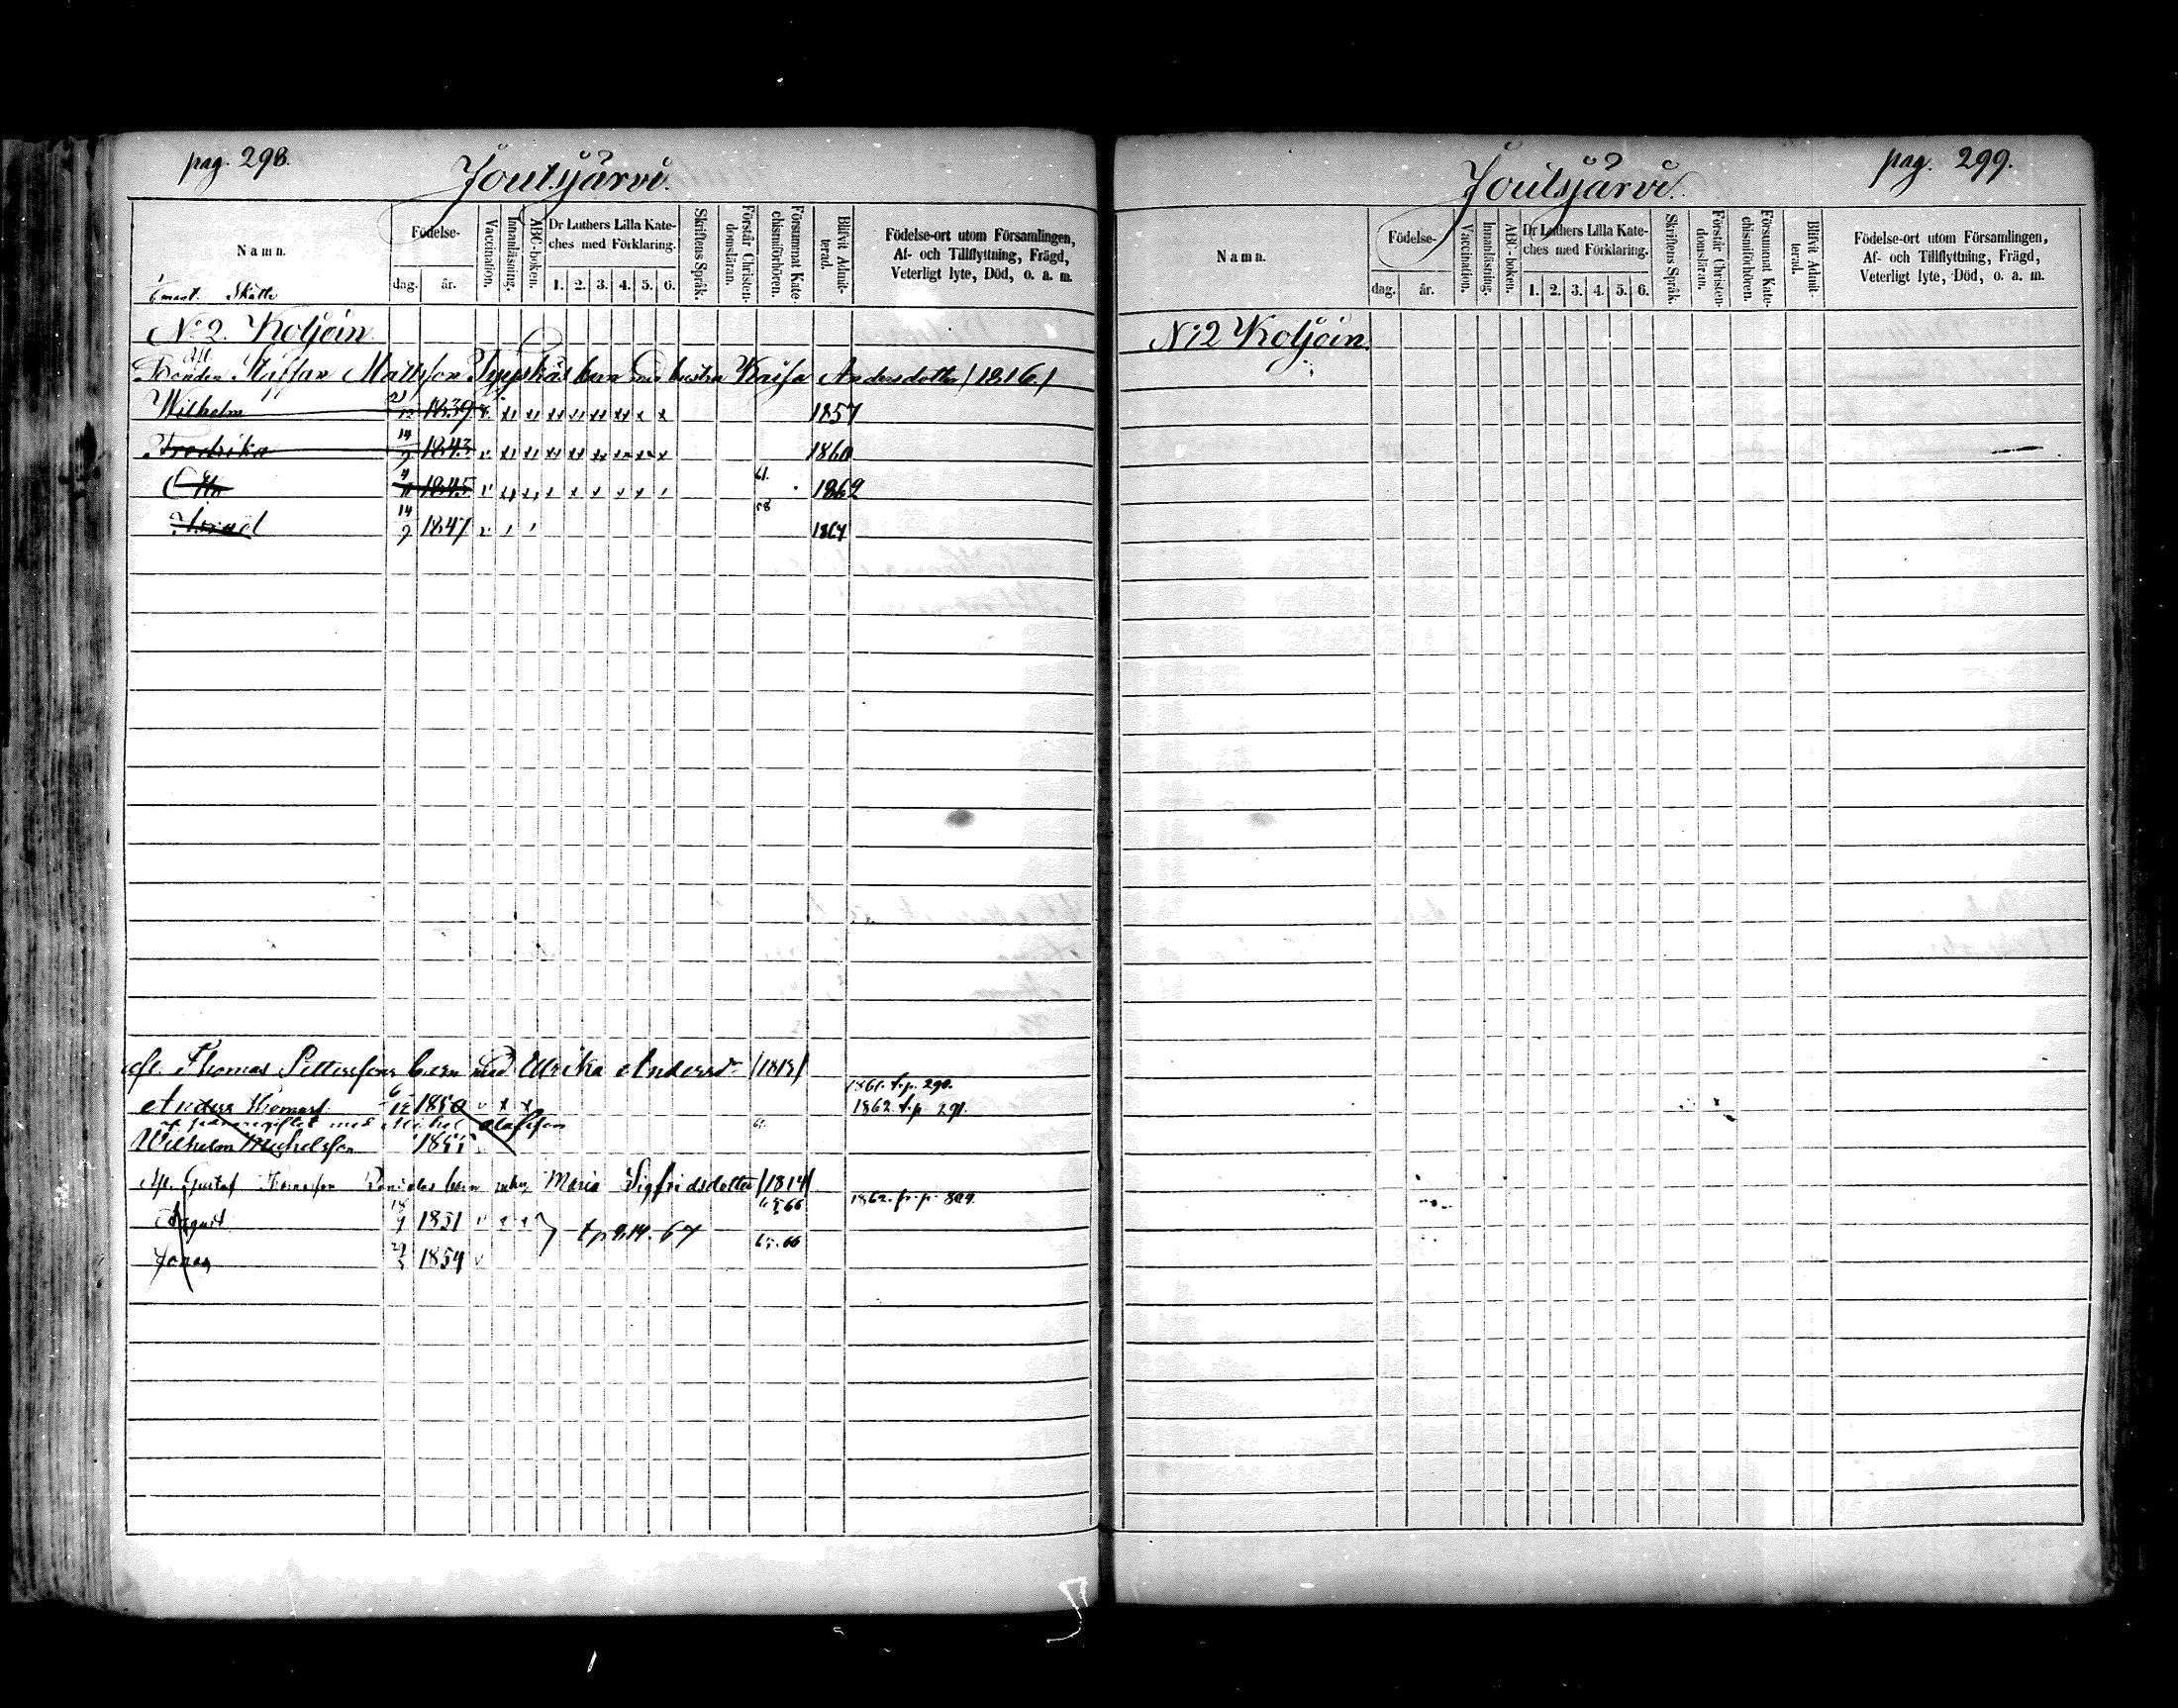 pag. 298.
Joutsjärvi.
Namn.
Födelse-
dag.
år.
Vaccination.
Innanläsning.
ABC-boken.
Dr Luthers Lilla Kate-
ches med Förklaring.
1. 2. 3. 4. 5. 6.
Skriftens Språk.
Förstår Christen-
domsläran.
Försummat Kate-
chismiförhören.
Blifvit Admit-
terad.
Födelse-ort utom Församlingen,
Af- och Tillflyttning, Frägd,
Veterligt lyte, Död, o. a. m.
mant. Skatte
No 2. Koljoin
Afl.
Bonden Staffan Mattsson barn med hustru Kaisa Andersdotter /1816/
Wilhelm 21/12 1839 1857
Fredrika 14/7 1843 1860
Otto 1845 61. 1862
Israel 14/9 1847 58 1864
Afl. Thomas Pettersons barn med Ulrika Andersdr /1819/
1861. t.p. 290.
Anders Thomass. 6/12 1850 1862. t.p. 291.
med Michel Olofsson
Wilhelm Michelsson 1855
Afl. Gustaf Thomasson barn Maria Sigfridsdotter /1814/
August 18/9 1851 65.66 1862. fr. p. 809.
t.p 814. 67
Jonas 29/5 1854 65.66
pag. 299.
Joutsjärvi.
Namn.
Födelse-
dag.
år.
Vaccination.
Innanläsning.
ABC-boken.
Dr Luthers Lilla Kate-
ches med Förklaring.
1. 2. 3. 4. 5. 6.
Skriftens Språk.
Förstår Christen-
domsläran.
Försummat Kate-
chismiförhören.
Blifvit Admit-
terad.
Födelse-ort utom Församlingen,
Af- och Tillflyttning, Frägd,
Veterligt lyte, Död, o. a. m.
No 2 Koljoin.